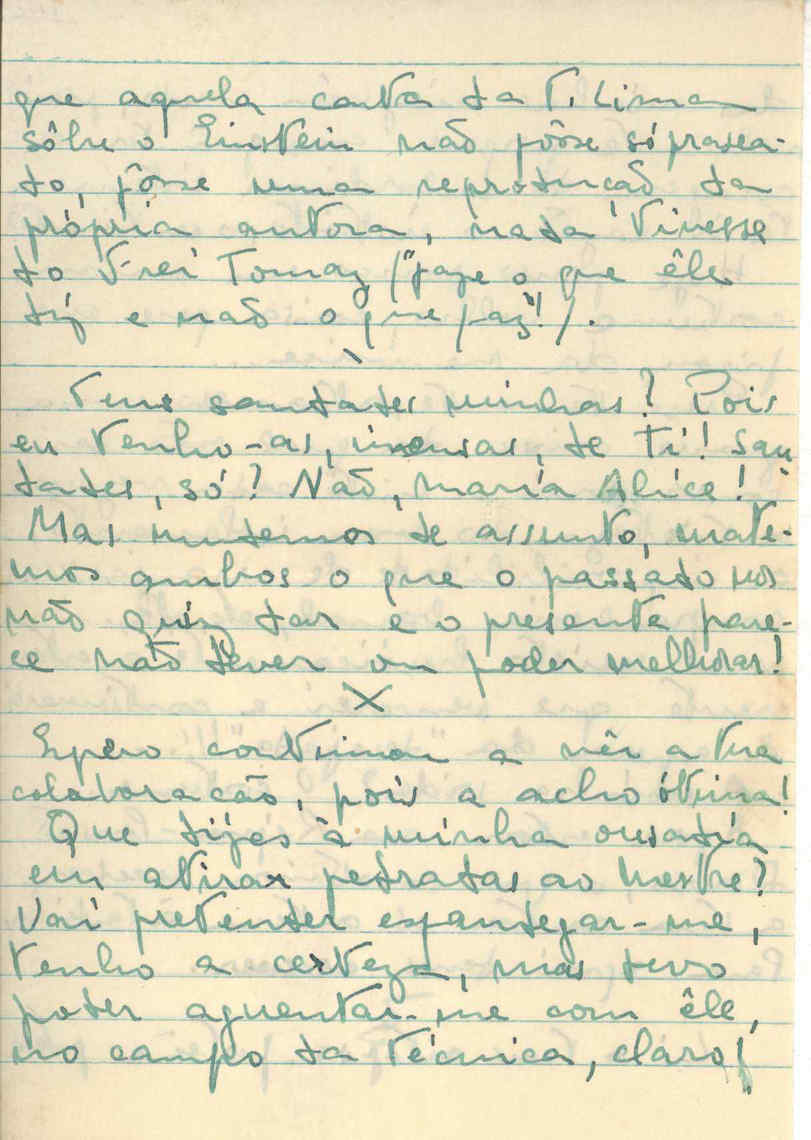 que aquela carta da T. Lima
sôbre o Einstein não fôsse só prosea-
do, fôsse uma reprodução da
própria autora, nada tivesse
do Frei Tomaz ("faze o que êle
diz e não o que faz"!).
Tens saudades minhas? Pois
eu tenho-as, imensas, de ti! Sau
dades, só? Não, Maria Alice!
Mas mudemos de assunto, mate-
mos ambos o que o passado nos
não quiz dar e o presente pare-
ce não dever ou poder melhorar!
X
Espero continuar a vêr a tua
colaboracão, pois a acho ótima!
Que dizes à minha ousadia
em atirar pedradas ao Mestre?
Vai pretender espandegar-me,
tenho a certeza, mas devo
poder aguentar-me com êle,
no campo da técnica, claro!